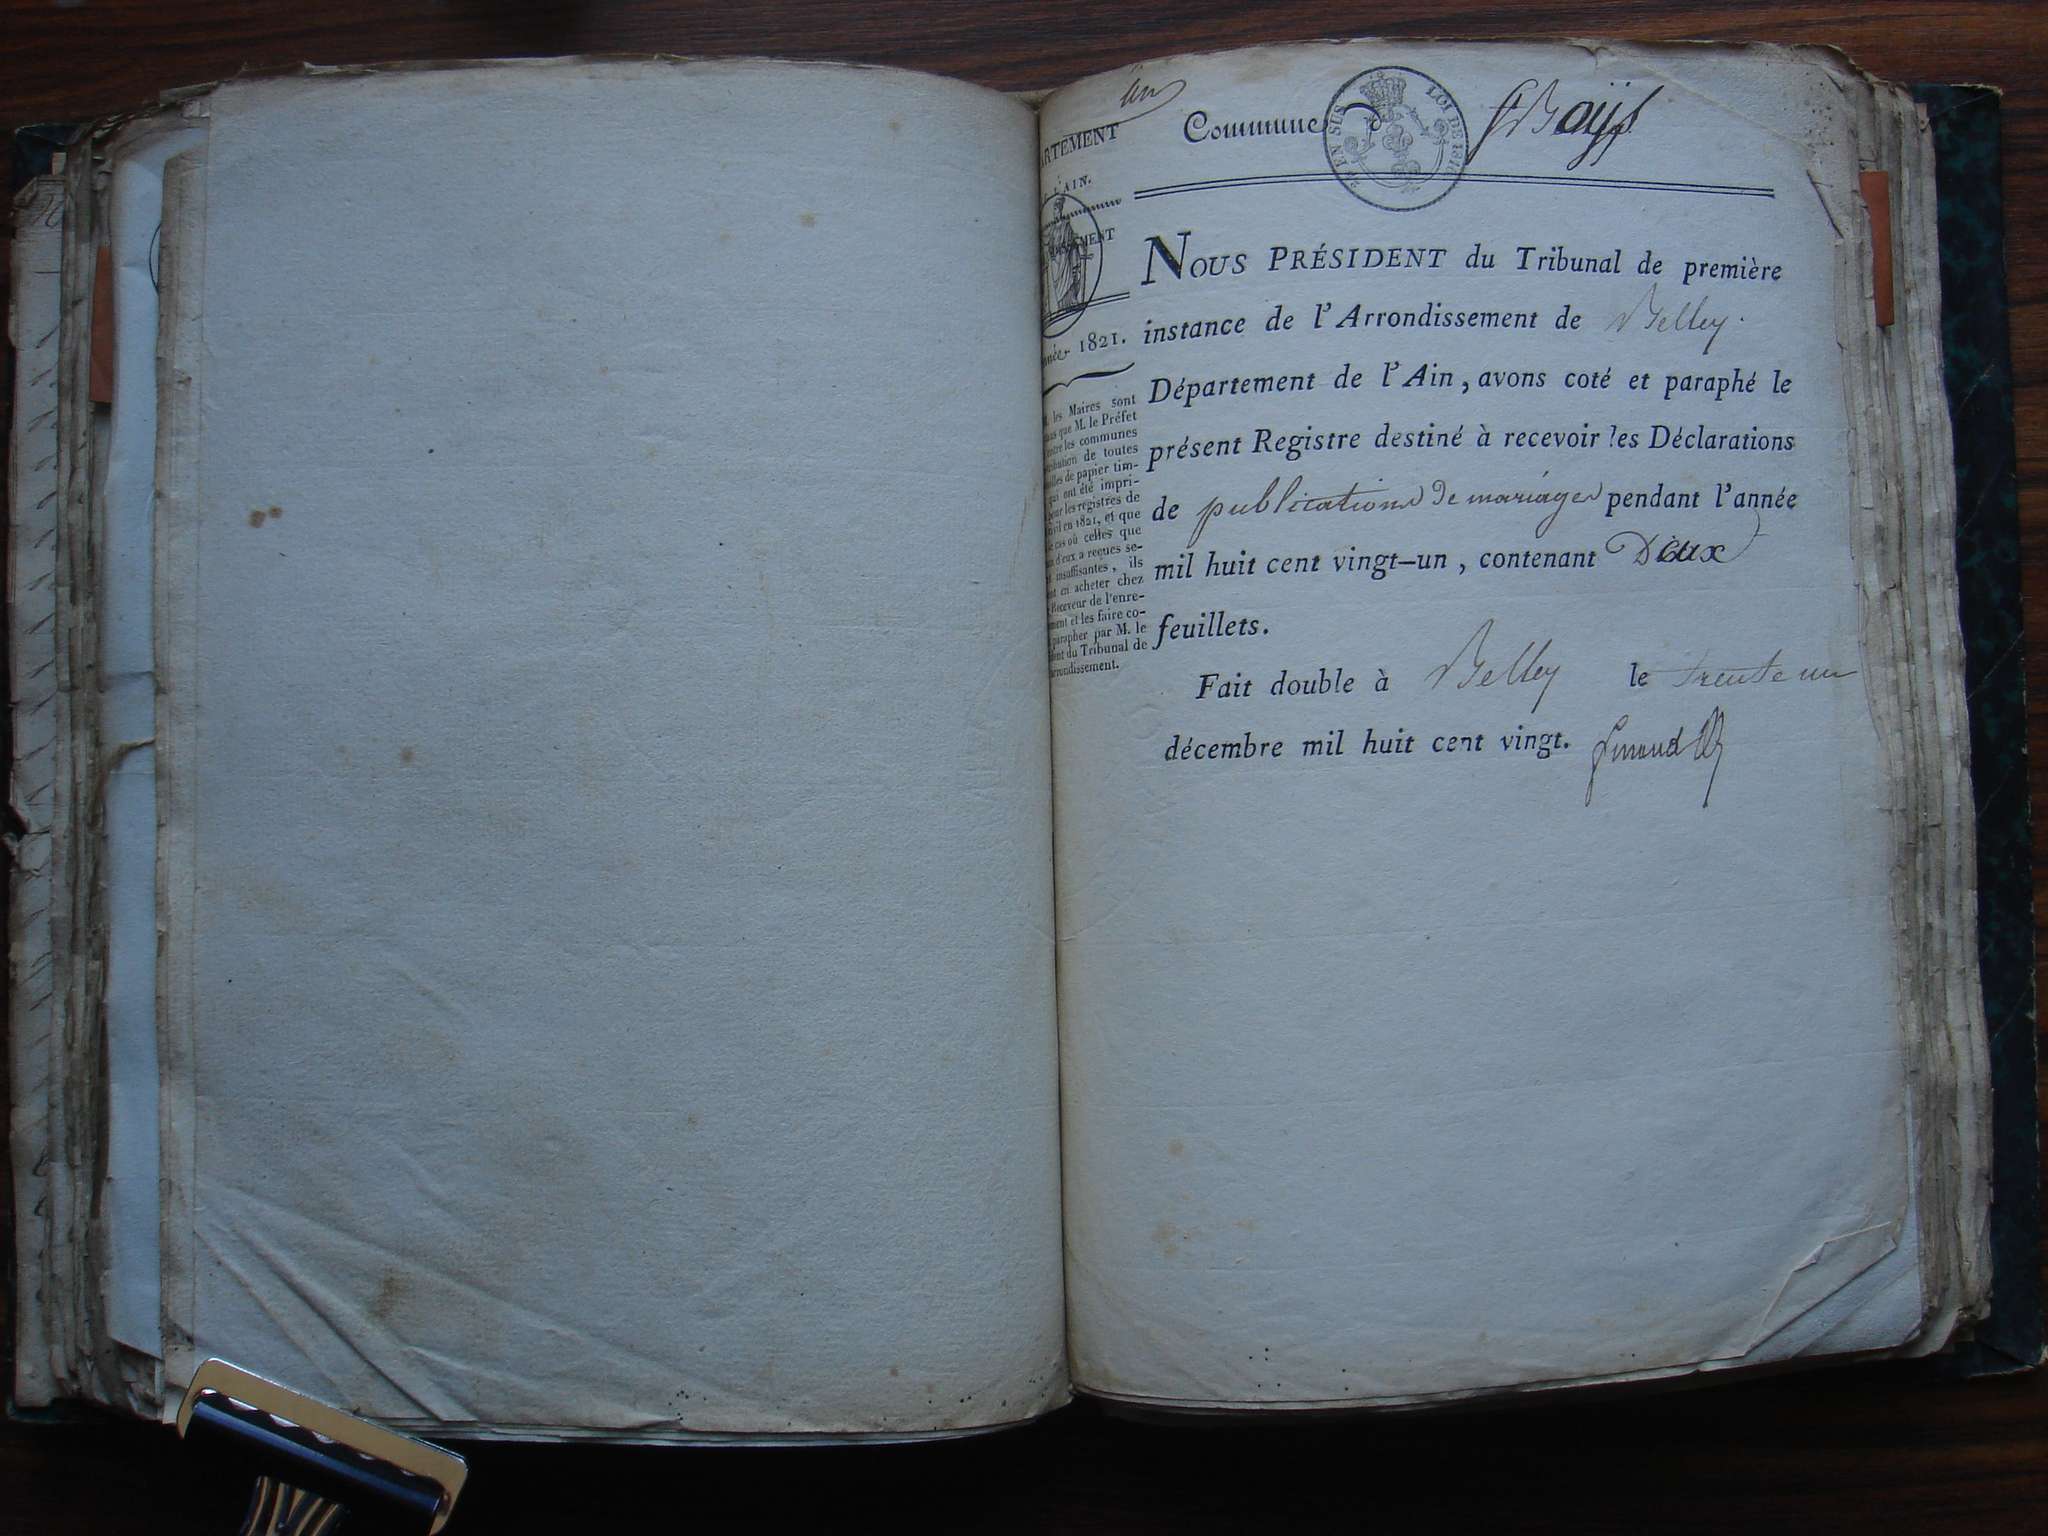 un
ARTEMENT
L'AIN.
EMENT
1821.
les Maires sont
que M. le Préfet
entre les communes
tribution de toutes
de papier tim-
qui ont été impri-
pour les registres de
civil en 1821, et que
le cas où celles que
d'eux a reçues se-
insuffisantes, ils
en acheter chez
Receveur de l'enre-
ment et les faire co-
parapher par M. le
dent du Tribunal de
arrondissement.
Commune D St Bois
EN SUS LOI DE 1816
NOUS PRÉSIDENT du Tribunal de première
instance de l'Arrondissement de Belley.
Département de l'Ain, avons coté et paraphé le
présent Registre destiné à recevoir les Déclarations
de publications de mariages pendant l'année
mil huit cent vingt-un, contenant Deux
feuillets.
Fait double à Belley le trente un
décembre mil huit cent vingt.